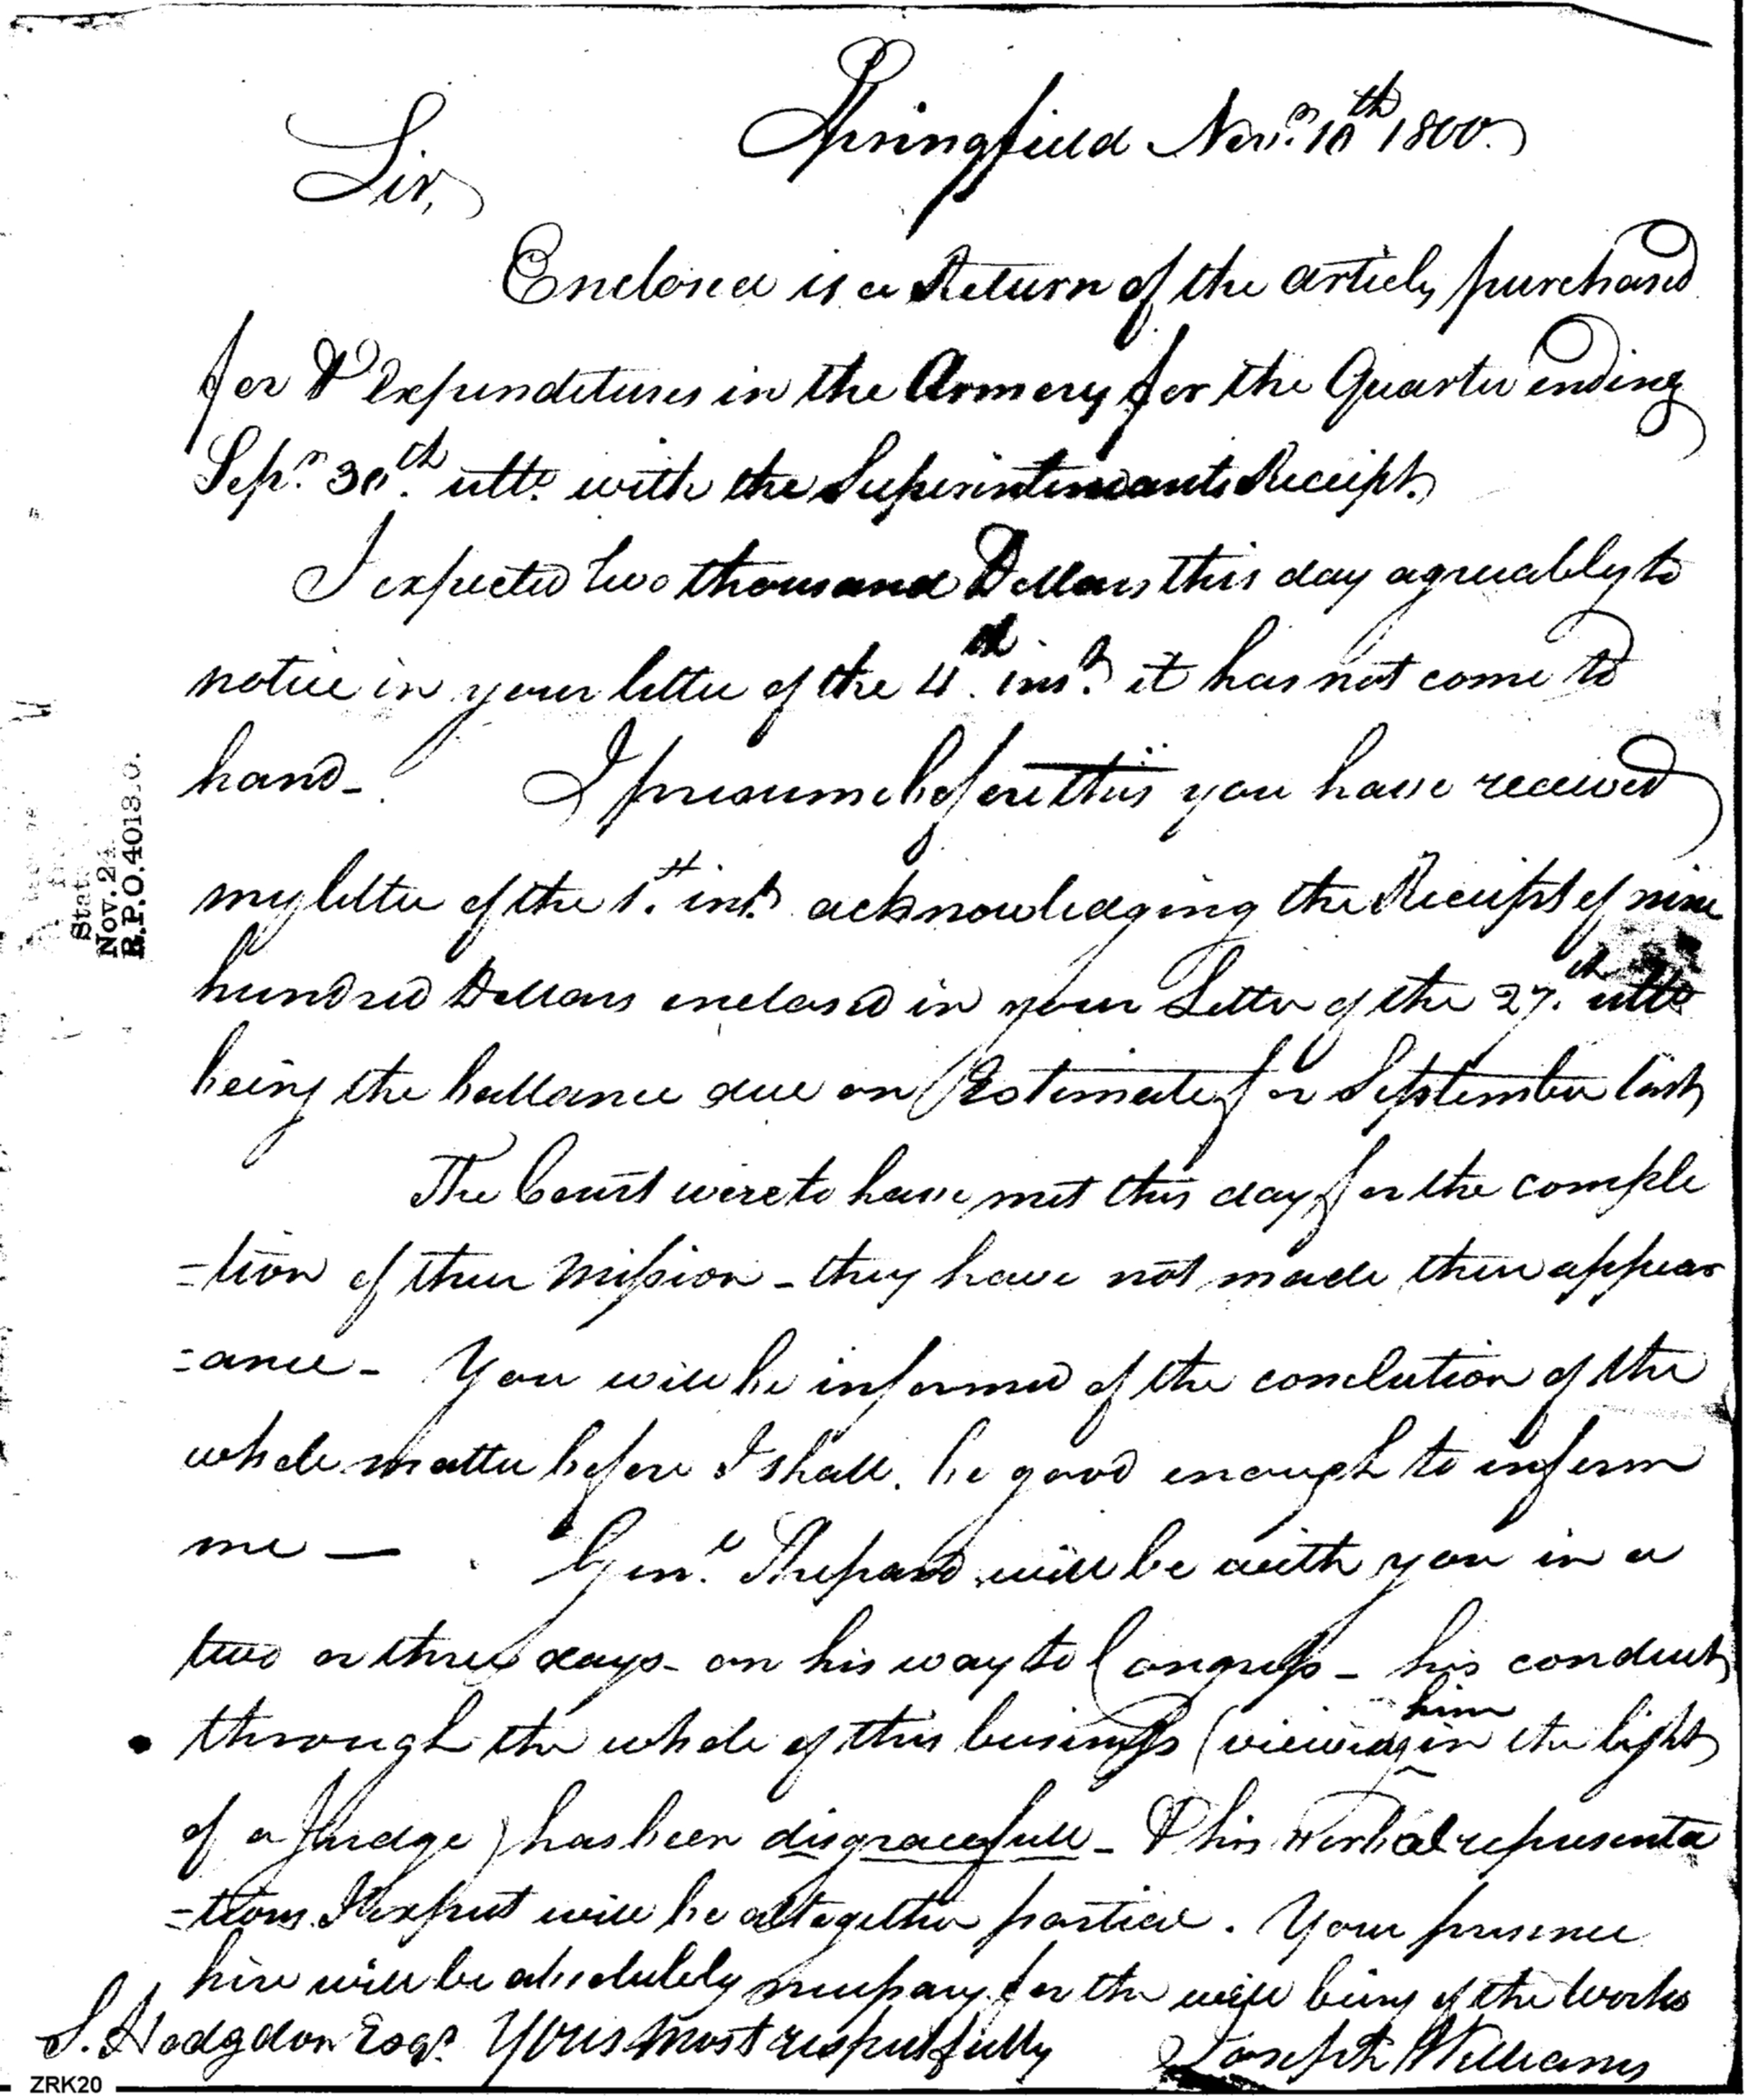 Springfield Novr. 10th 1800.
Sir,
Enclosed is a Return of the articles purchased
for & expenditures in the Armory for the Quarter ending
Sepr. 30th. ulto. with the Superintendants Receipt.
I expected two thousand Dollars this day agreeably to
notice in your letter of the 4th. inst. it has not come to
hand- I presume before this you have received
my letter of the 1st. inst. acknowledging the Receipt of nine
hundred Dollars enclosed in your Letter of the 27.th ulto
being the ballance due on Estimate for September last
The Court were to have met this day for the comple
=tion of their Mission - they have not made their appear
=ance - You will be informed of the conclution of the
whole matter before I shall. be good enough to inform
me — Genl. Shepard will be with you in a
two or three days - on his way to Congress - his conduct
through the whole of this business (viewing him in the light
of a Judge) has been disgracefull - & his verbal representa
=tions I expect will be altogether partial. Your presence
here will be absolutely necessary for the well being of the Works
S. Hodgdon Esqr. Yours most respectfully Joseph Williams
State
Nov. 24
R.P.O. 4013
ZRK20